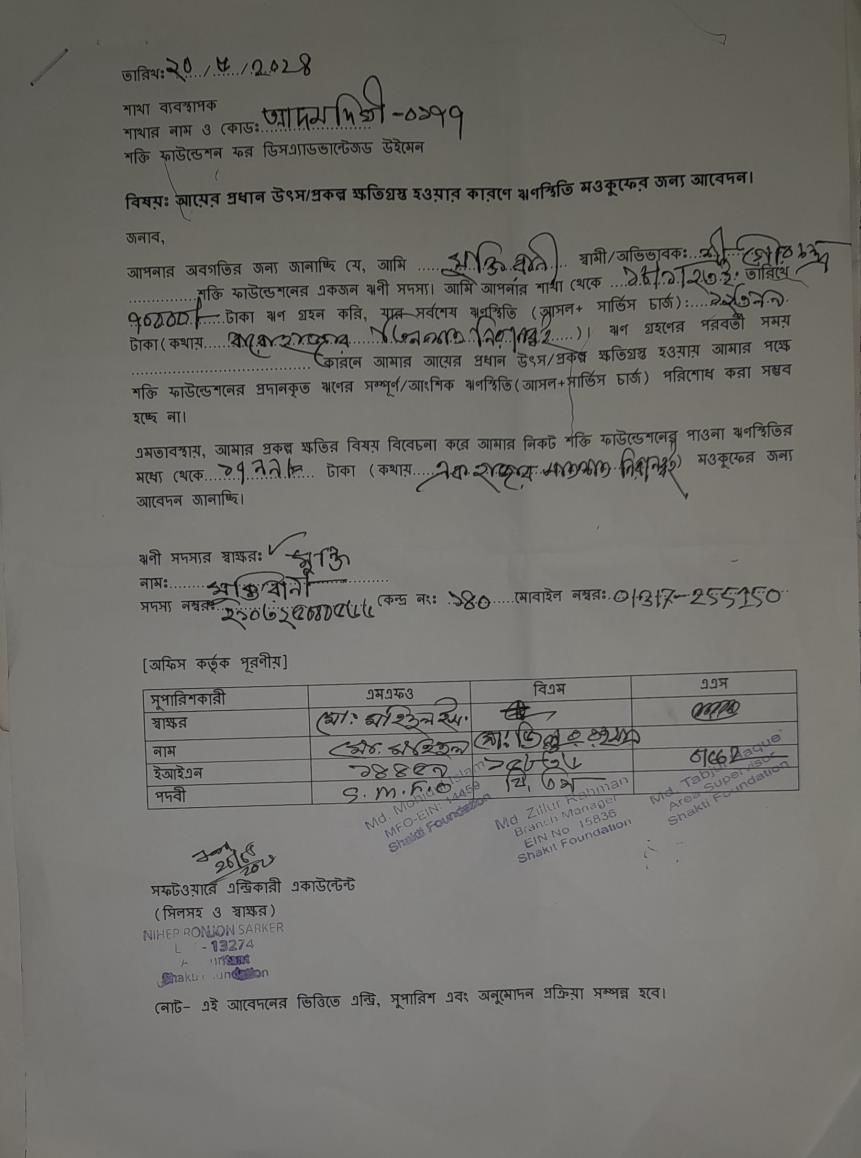 তারিখঃ ২০/৫/২০২৪
শাখা ব্যবস্থাপক
শাখার নাম ও কোডঃ আদমদিঘী -০১৭৭
শক্তি ফাউন্ডেশন ফর ডিসএ্যাডভান্টেজড উইমেন
বিষয়ঃ আয়ের প্রধান উৎস/প্রকল্প ক্ষতিগ্রস্থ হওয়ার কারণে ঋণস্থিতি মওকুফের জন্য আবেদন।
জনাব,
আপনার অবগতির জন্য জানাচ্ছি যে, আমি ...... মুক্তি রানী .. স্বামী/অভিভাবকঃ.. শ্রী
শক্তি ফাউন্ডেশনের একজন ঋনী সদস্য। আমি আপনার শাখা থেকে তারিখে
৭০০০০/- টাকা ঋণ গ্রহন করি, যার সর্বশেষ ঋণস্থিতি (আসল+ সার্ভিস চার্জ):
টাকা(কথায় )। ঋণ গ্রহনের পরবর্তী সময়
কারনে আমার আয়ের প্রধান উৎস/প্রকল্প ক্ষতিগ্রস্থ হওয়ায় আমার পক্ষে
শক্তি ফাউন্ডেশনের প্রদানকৃত ঋণের সম্পূর্ণ/আংশিক ঋণস্থিতি(আসল+সার্ভিস চার্জ) পরিশোধ করা সম্ভব
হচ্ছে না।
এমতাবস্থায়, আমার প্রকল্প ক্ষতির বিষয় বিবেচনা করে আমার নিকট শক্তি ফাউন্ডেশনের পাওনা ঋণস্থিতির
মধ্যে থেকে টাকা (কথায় এক হাজার সাতশত নিরানব্বই) মওকুফের জন্য
আবেদন জানাচ্ছি।
ঋনী সদস্যর স্বাক্ষরঃ মুক্তি
নামঃ মুক্তি রানী
সদস্য নম্বরঃ কেন্দ্র নংঃ ১৪০ মোবাইল নম্বরঃ 01317-255150
[অফিস কর্তৃক পূরনীয়]
সুপারিশকারী এমএফও বিএম এএস
স্বাক্ষর মোঃ মহিদুল ইস.
নাম মোঃ মহিদুল মোঃ জিল্লুর রহমান
ইআইএন ১৪৪৫৯ ১৫৮৩৬
পদবী S.M.F.O বি, এম
Md. Mohidul Islam
MFO-EIN: 14459
Shakti Foundation
Md Zillur Rahman
Branch Manager
EIN No 15836
Shakti Foundation
Area Supervisor
Shakti Foundation
সফটওয়ারে এন্ট্রিকারী একাউন্টেন্ট
(সিলসহ ও স্বাক্ষর)
NIHER RONJON SARKER
- 13274
Shakti Foundation
নোট- এই আবেদনের ভিত্তিতে এন্ট্রি, সুপারিশ এবং অনুমোদন প্রক্রিয়া সম্পন্ন হবে।